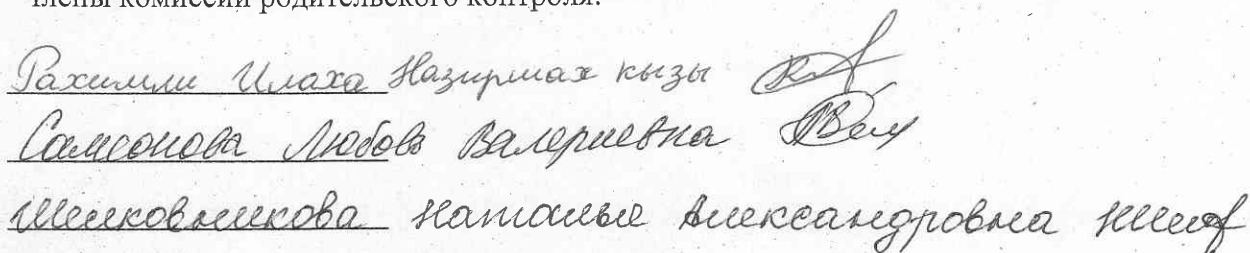 члены комиссии родительского контроля:
Рахимли Илаха Назирмах кызы
Самсонова Любовь Валериевна
Шелковникова Наталья Александровна